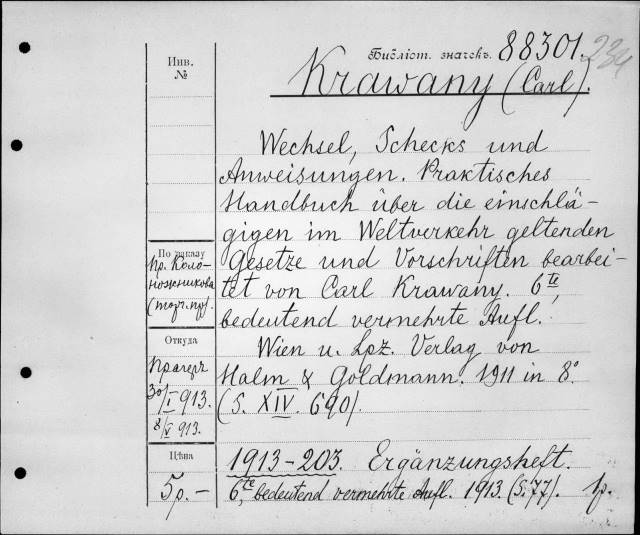 Инв.
№
Библіот. значекъ. 88301.
234
Krawany (Carl).
Wechsel, Schecks und
Anweisungen. Praktisches
Handbuch über die einschlä-
gigen im Weltverkehr geltenden
Gesetze und Vorschriften bearbei-
tet von Carl Krawany. 6te,
bedeutend vermehrte Aufl.
Wien u. Lpz. Verlag von
Halm & Goldmann. 1911 in 8°
(S. XIV. 690).
По заказу
Пр. Коло-
ножникова
(торг. пр).
Откуда
Прагеръ
30/I 913.
8/V 913.
Цѣна
5р.–
1913–203. Ergänzungsheft.
6te, bedeutend vermehrte Aufl. 1913. (S. 77). 1р.